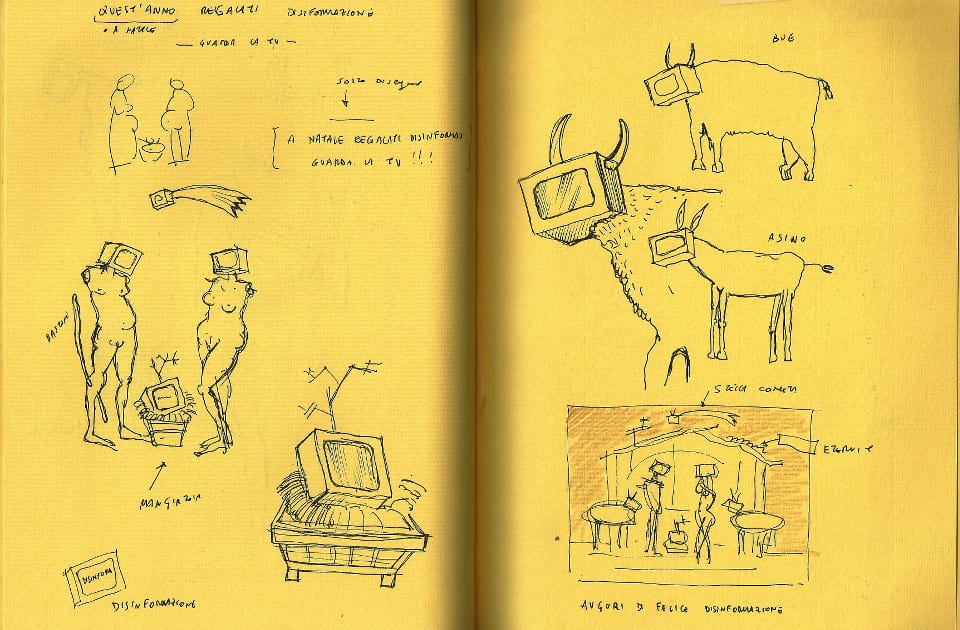 QUEST'ANNO REGALATI DISINFORMAZIONE
• A NATALE
— GUARDA LA TV —
SOTTO DISEGNO
A NATALE REGALATI DISINFORMAZ
GUARDA LA TV !!!
BASTONE
MANGIATOIA
DISINFORM
DISINFORMAZIONE
BUE
ASINO
STELLA COMETA
ETERNIT
AUGURI DI FELICE DISINFORMAZIONE